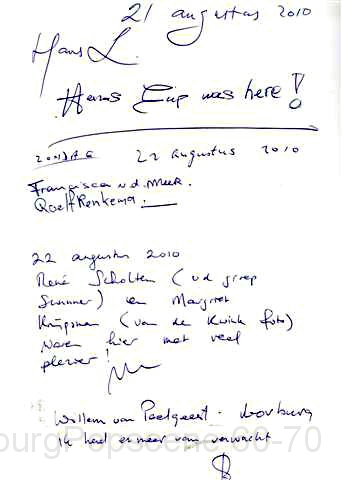 21 augustus 2010
Hans L.
Hans Eijp was here!
ZONDAG 22 augustus 2010
Francisca v.d. Meer.
Roelf Renkema.
22 augustus 2010
René Scholten (v d groep
Swinner) en Margreet
Krijgsman (van de Kwink foto)
waren hier met veel
plezier!
Willem van Poelgeest. Voorburg
ik had er meer van verwacht
burgPopscene 60-70